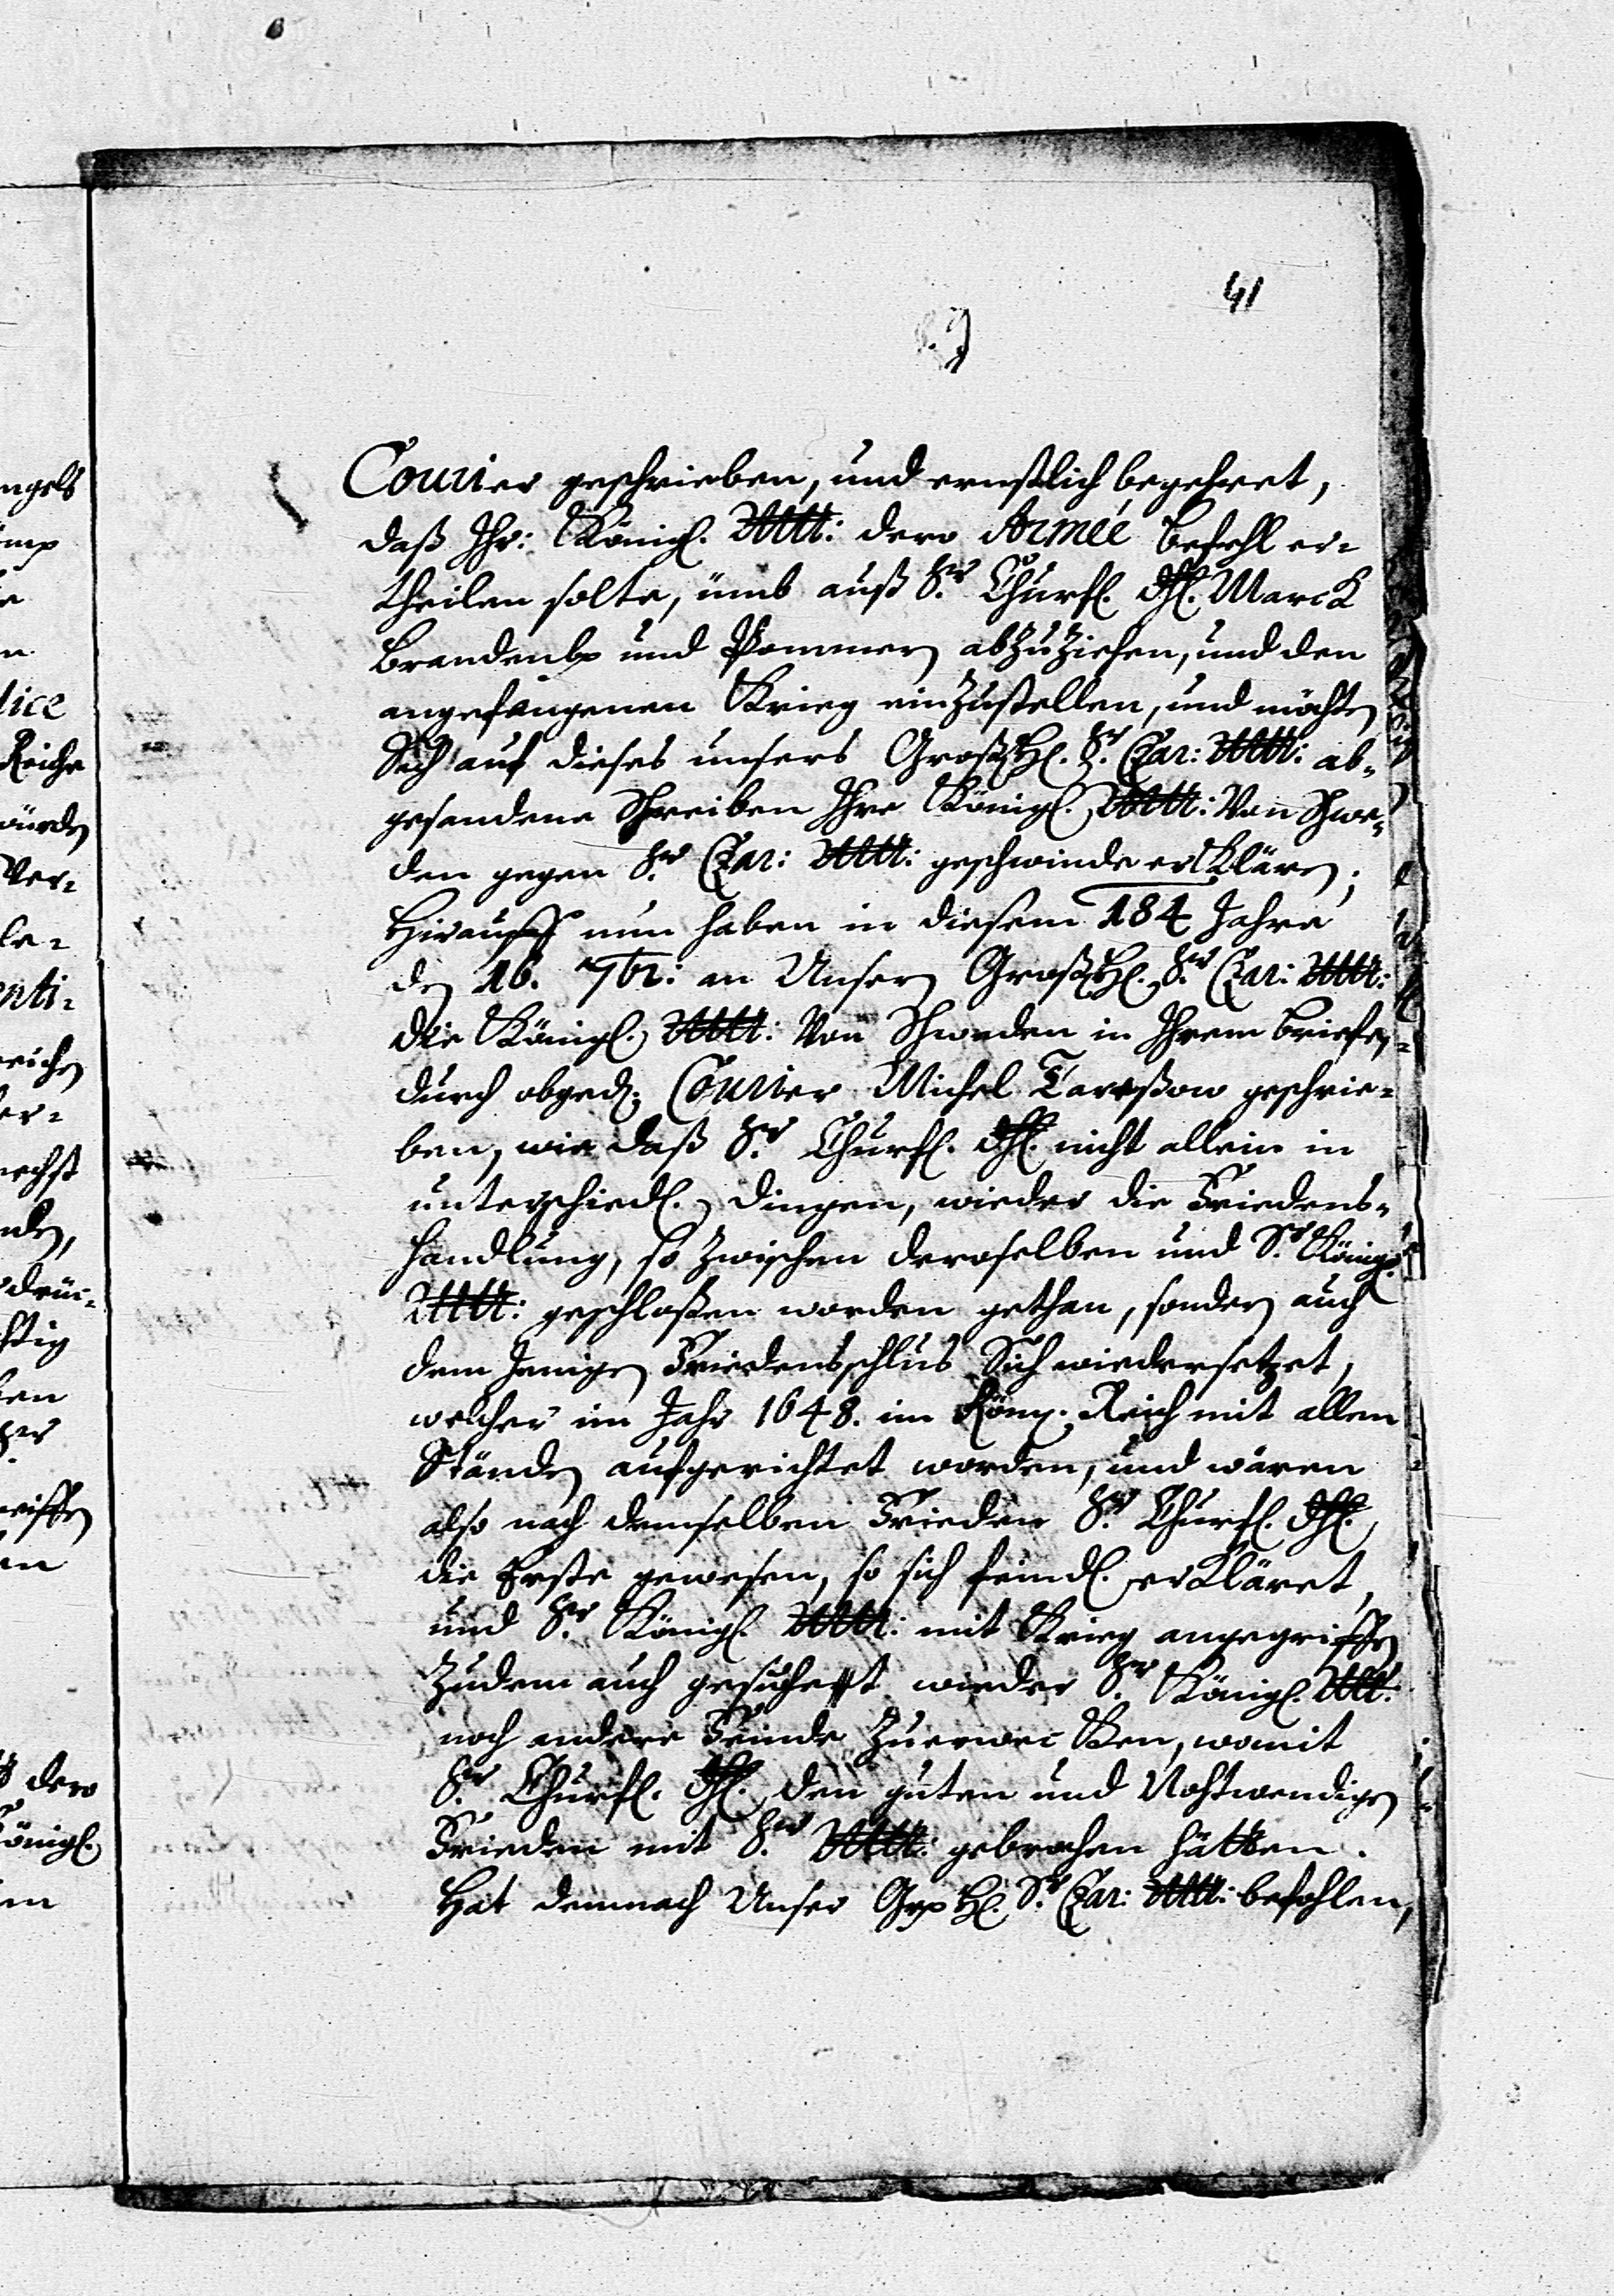 41
Courier geschrieben, und ernstlich begehret,
daß Ihr: Königl. Maytt: dero Armeé befehl er-
theilen solte, ümb auß Sr. Churfl. Dhl. Marck
Brandenb. und Pommern abzuziehen, und den
angefangenen Krieg einzustellen, und möchten
Sich auf dieses unsers Großh. Sr. Czar: Maytt: ab-
gesandene Schreiben Ihre Königl. Maytt: Von Schwe-
den gegen Sr. Czar: Maytt: geschwinde erklären;
Hirauff nun haben in diesem 184 Jahre
den 16. 7br: an Unsern Großh. Sr. Czar: Maytt:
die Königl. Maytt: Von Schweden in Ihrem briefe,
durch obged. Courier Michel geschrie-
ben, wie daß Sr. Churfl. Dhl. nicht allein in
unterschiedl. dingen, wieder die Friedens-
handlung, so zwischen deroselben und Sr. Königl.
Maytt: geschloßen worden gethan, sondern auch
dem Jenigen Friedensschlus Sich wiedersetzet,
welcher im Jahr 1648. im Röm. Reich mit allen
Ständen aufgerichtet worden, und wären
also nach demselben Frieden Sr. Churfl. Dhl.
die Erste gewesen, so sich feindl. erkläret,
und Sr. Königl. Maytt: mit Krieg angegriffen
zudem auch gesuchett wieder Sr. Königl. Maytt.
noch andere Feinde zuerwecken, womit
Sr. Churfl. Dhl. den guten und Nohtwendigen
Frieden mit Sr. Maytt: gebrochen hätten.
Hat demnach Unser Gr. H. Sr. Czar: Maytt: befohlen,